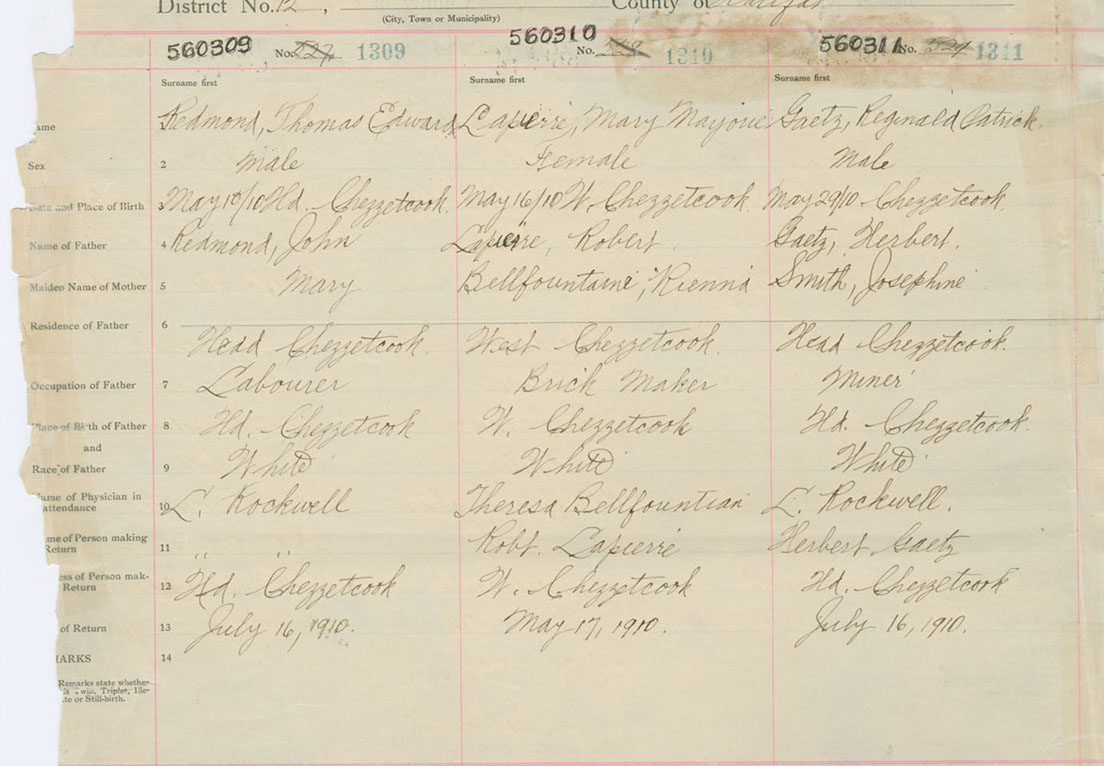 District No. 12, County of Halifax
(City, Town or Municipality)
560309 No. 527 1309 560310 No. 528 1310 560311 No. 529 1311
Surname first Surname first Surname first
ame Redmond, Thomas Edward Lapierre, Mary Marjorie Gaetz, Reginald Patrick.
Sex 2 Male Female Male
Date and Place of Birth 3 May 10/10 Hd. Chezzetcook. May 16/10 W. Chezzetcook. May 29/10 Chezzetcook.
Name of Father 4 Redmond, John Lapierre, Robert. Gaetz, Herbert.
Maiden Name of Mother 5 Mary Bellfountaine, Smith, Josephine
Residence of Father 6
Head Chezzetcook. West Chezzetcook. Head Chezzetcook.
Occupation of Father 7 Labourer Brick Maker Miner
Place of Birth of Father 8 Hd. Chezzetcook W. Chezzetcook Hd. Chezzetcook.
and
Race of Father 9 White White White
Name of Physician in
attendance 10 L. Rockwell Theresa Bellfountian L. Rockwell.
me of Person making
Return 11 " " Robt. Lapierre Herbert Gaetz
ess of Person mak-
Return 12 Hd. Chezzetcook W. Chezzetcook Hd. Chezzetcook
of Return 13 July 16, 1910. May 17, 1910. July 16, 1910.
MARKS 14
Remarks state whether
s Twin, Triplet, Ille-
te or Still-birth.